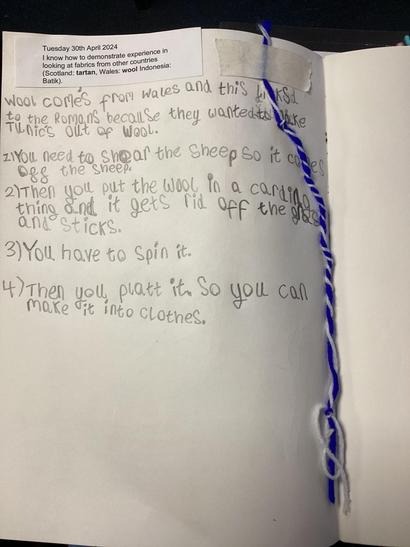 Tuesday 30th April 2024
I know how to demonstrate experience in
looking at fabrics from other countries
(Scotland: tartan, Wales: wool Indonesia:
Batik).
Wool comes from Wales and this linked
to the Romans because they wanted to make
Tunics out of wool.
1) You need to shear the sheep so it comes
off the sheep.
2) Then you put the wool in a carding
thing and it gets rid off the grass
and sticks.
3) You have to spin it.
4) Then you platt it. So you can
make it into clothes.